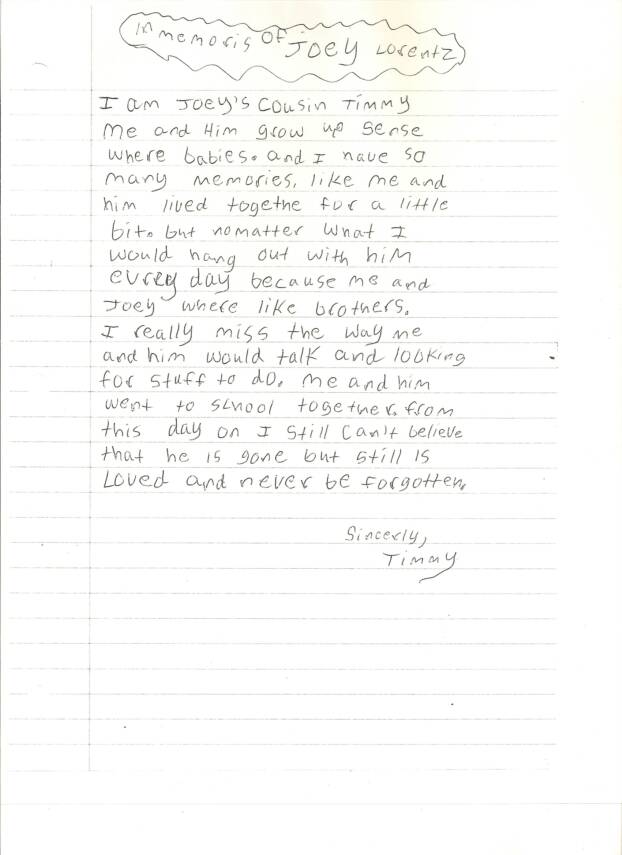 In memoris of Joey Lorentz
I am Joey's cousin Timmy
me and Him grow up sense
where babies. and I have so
many memories, like me and
him lived togethe for a little
bit. but nomatter what I
would hang out with him
evrey day because me and
Joey where like brothers.
I really miss the way me
and him would talk and looking
for stuff to do. me and him
went to school together. from
this day on I still can't believe
that he is gone but still is
Loved and never be forgotten.
Sincerly,
Timmy